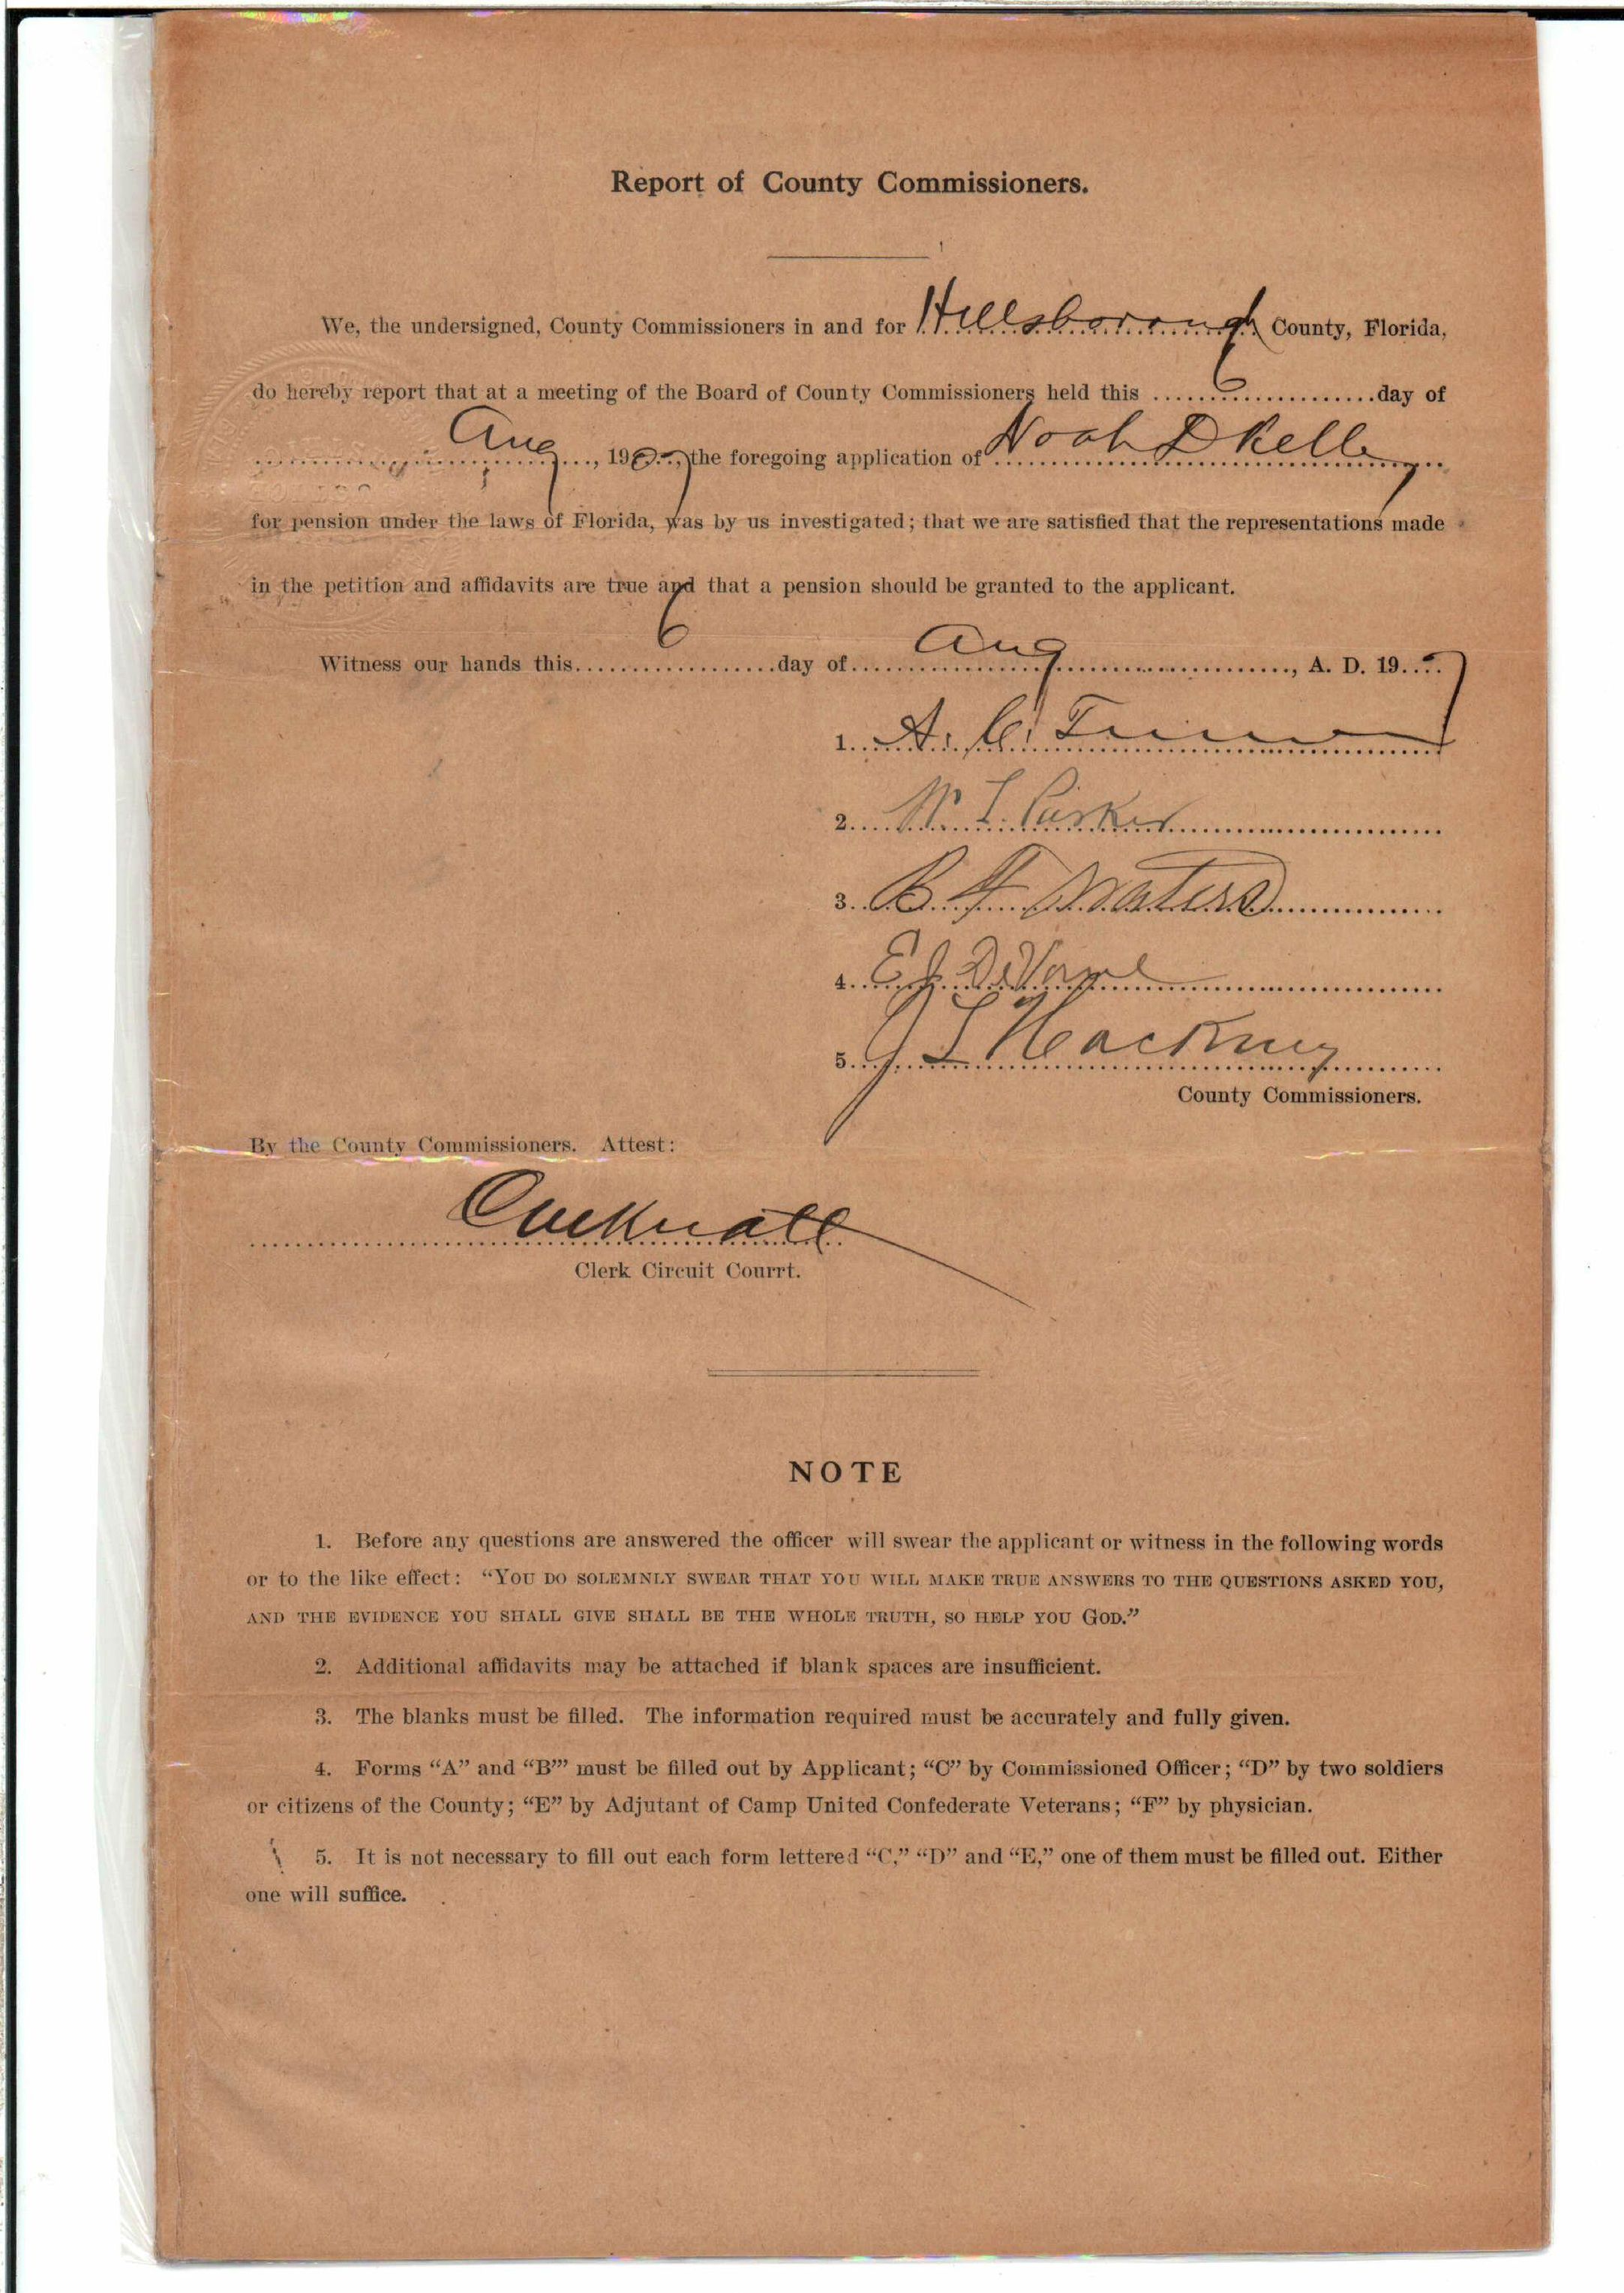 Report of County Commissioners.
We, the undersigned, County Commissioners in and for Hillsborough County, Florida,
do hereby report that at a meeting of the Board of County Commissioners held this 6 day of
Aug, 1907, the foregoing application of Noah D Kelley
for pension under the laws of Florida, was by us investigated; that we are satisfied that the representations made
in the petition and affidavits are true and that a pension should be granted to the applicant.
Witness our hands this 6 day of Aug, A. D. 19 7
1. A. C.
2. W. T. Parker
3. B. H. Waters
4. E J DeVane
5. J T Hackney
County Commissioners.
By the County Commissioners. Attest:
Clerk Circuit Courrt.
NOTE
1. Before any questions are answered the officer will swear the applicant or witness in the following words
or to the like effect: “YOU DO SOLEMNLY SWEAR THAT YOU WILL MAKE TRUE ANSWERS TO THE QUESTIONS ASKED YOU,
AND THE EVIDENCE YOU SHALL GIVE SHALL BE THE WHOLE TRUTH, SO HELP YOU GOD.”
2. Additional affidavits may be attached if blank spaces are insufficient.
3. The blanks must be filled. The information required must be accurately and fully given.
4. Forms “A” and “B’” must be filled out by Applicant; “C” by Commissioned Officer; “D” by two soldiers
or citizens of the County; “E” by Adjutant of Camp United Confederate Veterans; “F” by physician.
5. It is not necessary to fill out each form lettered “C,” “D” and “E,” one of them must be filled out. Either
one will suffice.